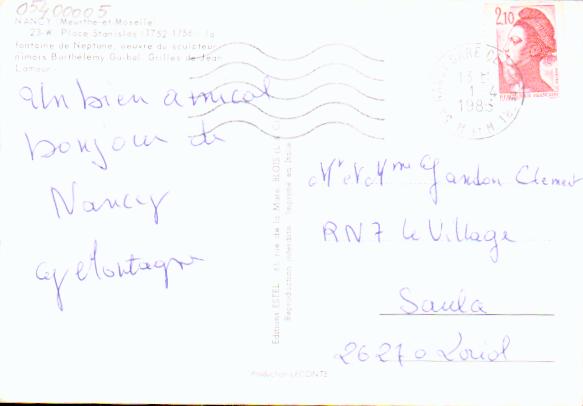 05400005
NANCY (Meurthe-et-Moselle)
23-W. Place Stanislas (1752-1756) : la
fontaine de Neptune, oeuvre du sculpteur
nimois Barthélemy Guibal. Grilles de Jean
Lamour.
2,10
13 H
1 - 4
1986
Un bien amical
bonjour de
Nancy
Montagne
Mr et Mme Gandon Clement
RN7 le Village
Saula
26270 Loriol
Editions ESTEL 61, rue de la Mare BLOIS (L. & C.)
Reproduction interdite. Imprimé en Italie
Production LECONTE